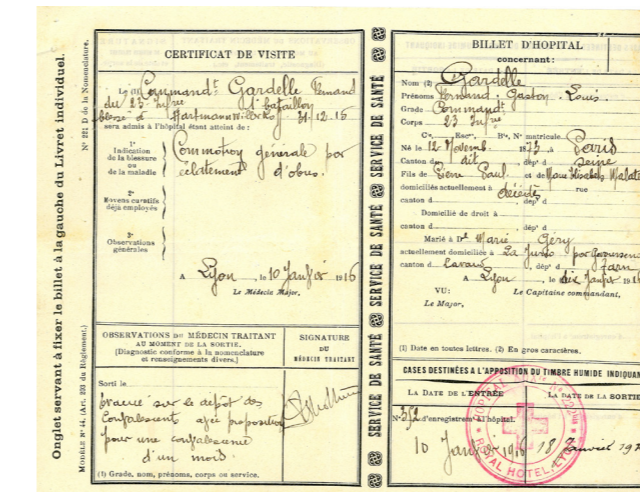 Onglet servant à fixer le billet à la gauche du Livret individuel.
N° 221 D de la Nomenclature.
MODÈLE N° 44, (Art. 233 du Règlement.)
CERTIFICAT DE VISITE
Commandt Gardelle Fernand
du 23 Infrie
blessé à 31.12.15
sera admis à l'hôpital étant atteint de :
1°
Indication
de la blessure
ou
de la maladie
Commotion générale par
éclatement d'obus.
2°
Moyens curatifs
déjà employés
3°
Observations
générales
A Lyon, le 10 Janvier 1916
Le Médecin Major,
OBSERVATIONS DU MÉDECIN TRAITANT
AU MOMENT DE LA SORTIE.
(Diagnostic conforme à la nomenclature
et renseignements divers.)
SIGNATURE
DU
MÉDECIN TRAITANT
Sorti le
évacué sur le dépôt des
Convalescents avec proposition
pour une convalescence
d'un mois
(1) Grade, nom, prénoms, corps ou service.
SERVICE DE SANTÉ SERVICE DE SANTÉ SERVICE DE SANTÉ
BILLET D'HOPITAL
concernant :
Nom (2) Gardelle
Prénoms Fernand Gaston Louis.
Grade Commandt
Corps 23 Infrie
Cie, Escn, Bie, N° matricule.
Né le 12 Novemb. 1873 à Paris
Canton de dit dépt d Seine
Fils de Pierre Paul et de Marie Elisabeth
domiciliés actuellement à décédés rue
canton d dépt d
Domicilié de droit à
canton d dépt d
Marié à De Marie Géry
actuellement domiciliée à par
canton d Lavaur dépt d Tarn
A Lyon, le dix Janvier 1916
VU:
Le Major,
Le Capitaine commandant,
(1) Date en toutes lettres. (2) En gros caractères.
CASES DESTINÉES A L'APPOSITION DU TIMBRE HUMIDE INDIQUAN
LA DATE DE L'ENTRÉE
LA DATE DE LA SORTIE
N° 572 d'enregistremt à l'hôpital.
10 Janvier 1916
18 Janvier 19
ROYAL HOTEL, LYON